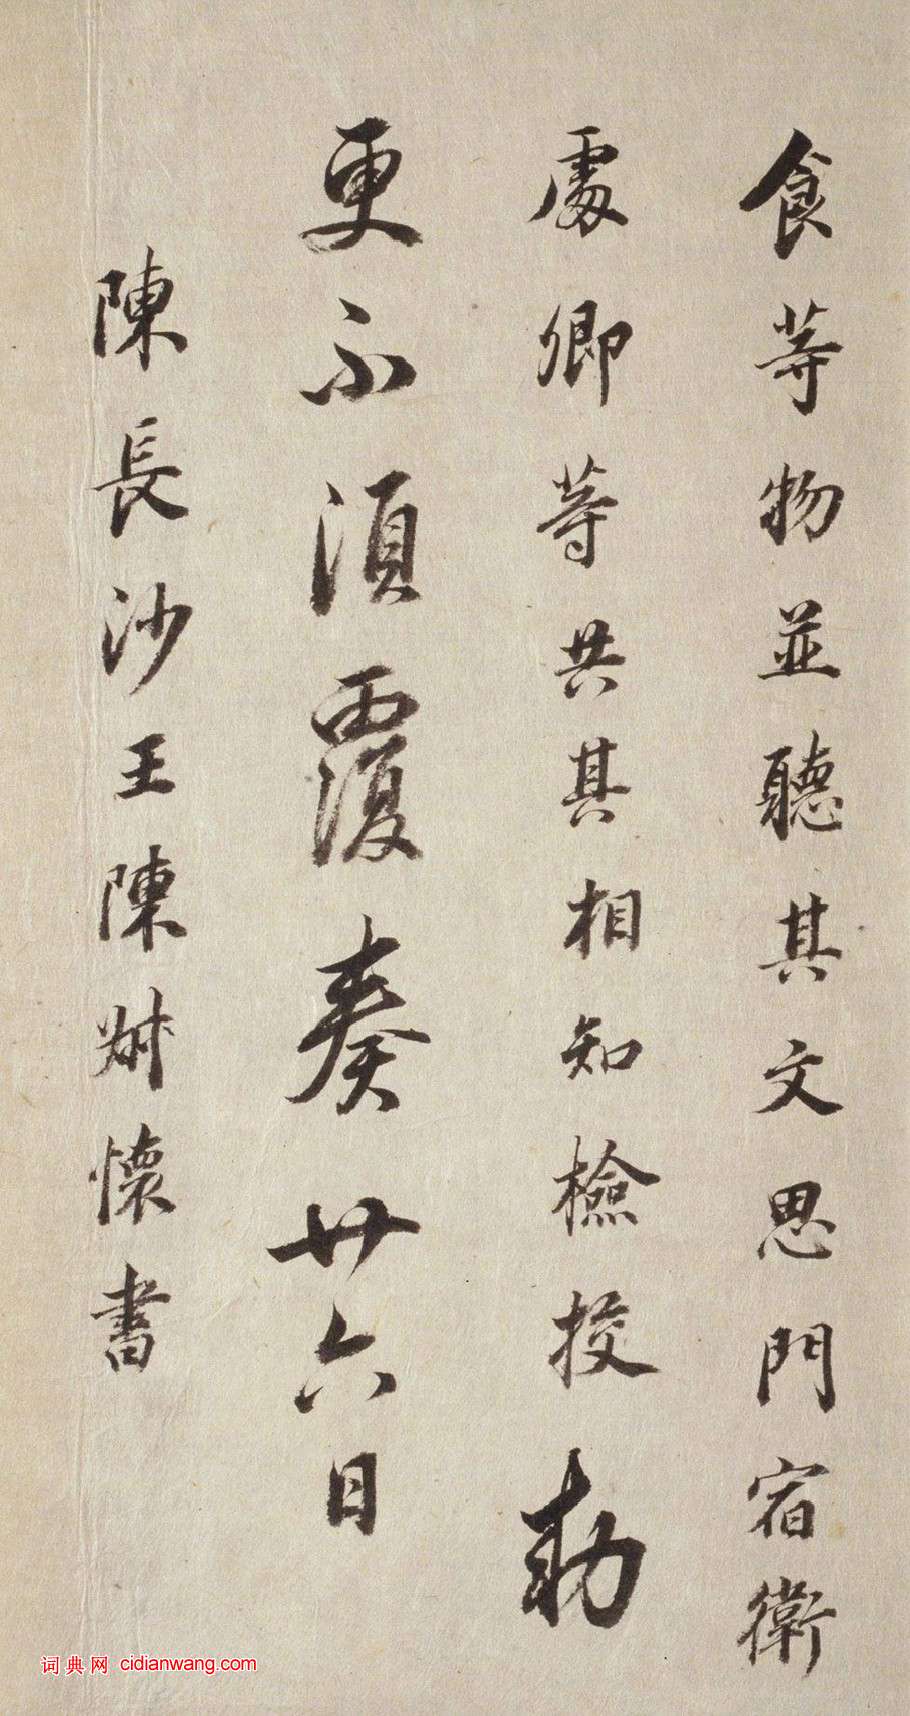 食等物並聽其文思門宿衛
處卿等共其相知檢挍勅
更不須覆奏廿六日
陳長沙王陳叔懷書
词典网 cidianwang.com